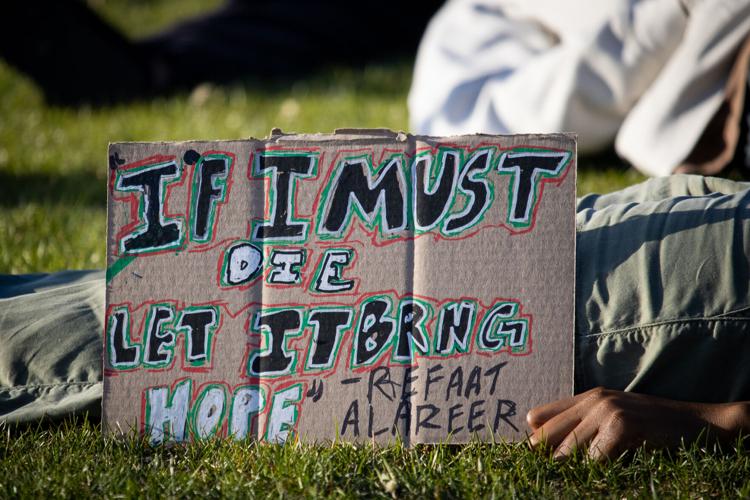 "IF I MUST
DIE
LET IT BRING
HOPE" -REFAAT
ALAREER